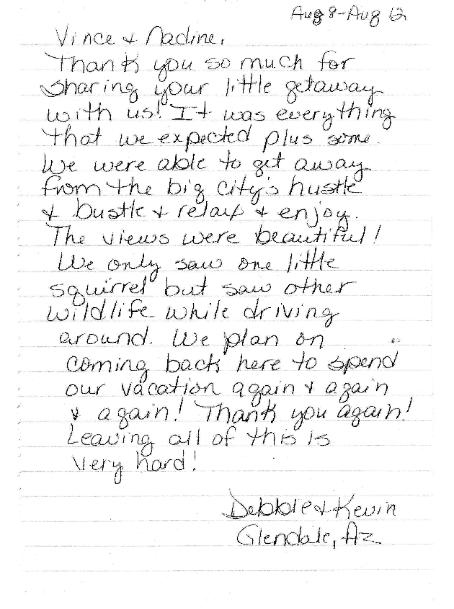 Aug 8-Aug 12
Vince & Nadine,
Thank you so much for
sharing your little getaway
with us! It was everything
that we expected plus some.
We were able to get away
from the big city's hustle
& bustle & relax & enjoy.
The views were beautiful!
We only saw one little
squirrel but saw other
wildlife while driving
around. We plan on
coming back here to spend
our vacation again & again
& again! Thank you again!
Leaving all of this is
very hard!
Debbie & Kevin
Glendale, Az